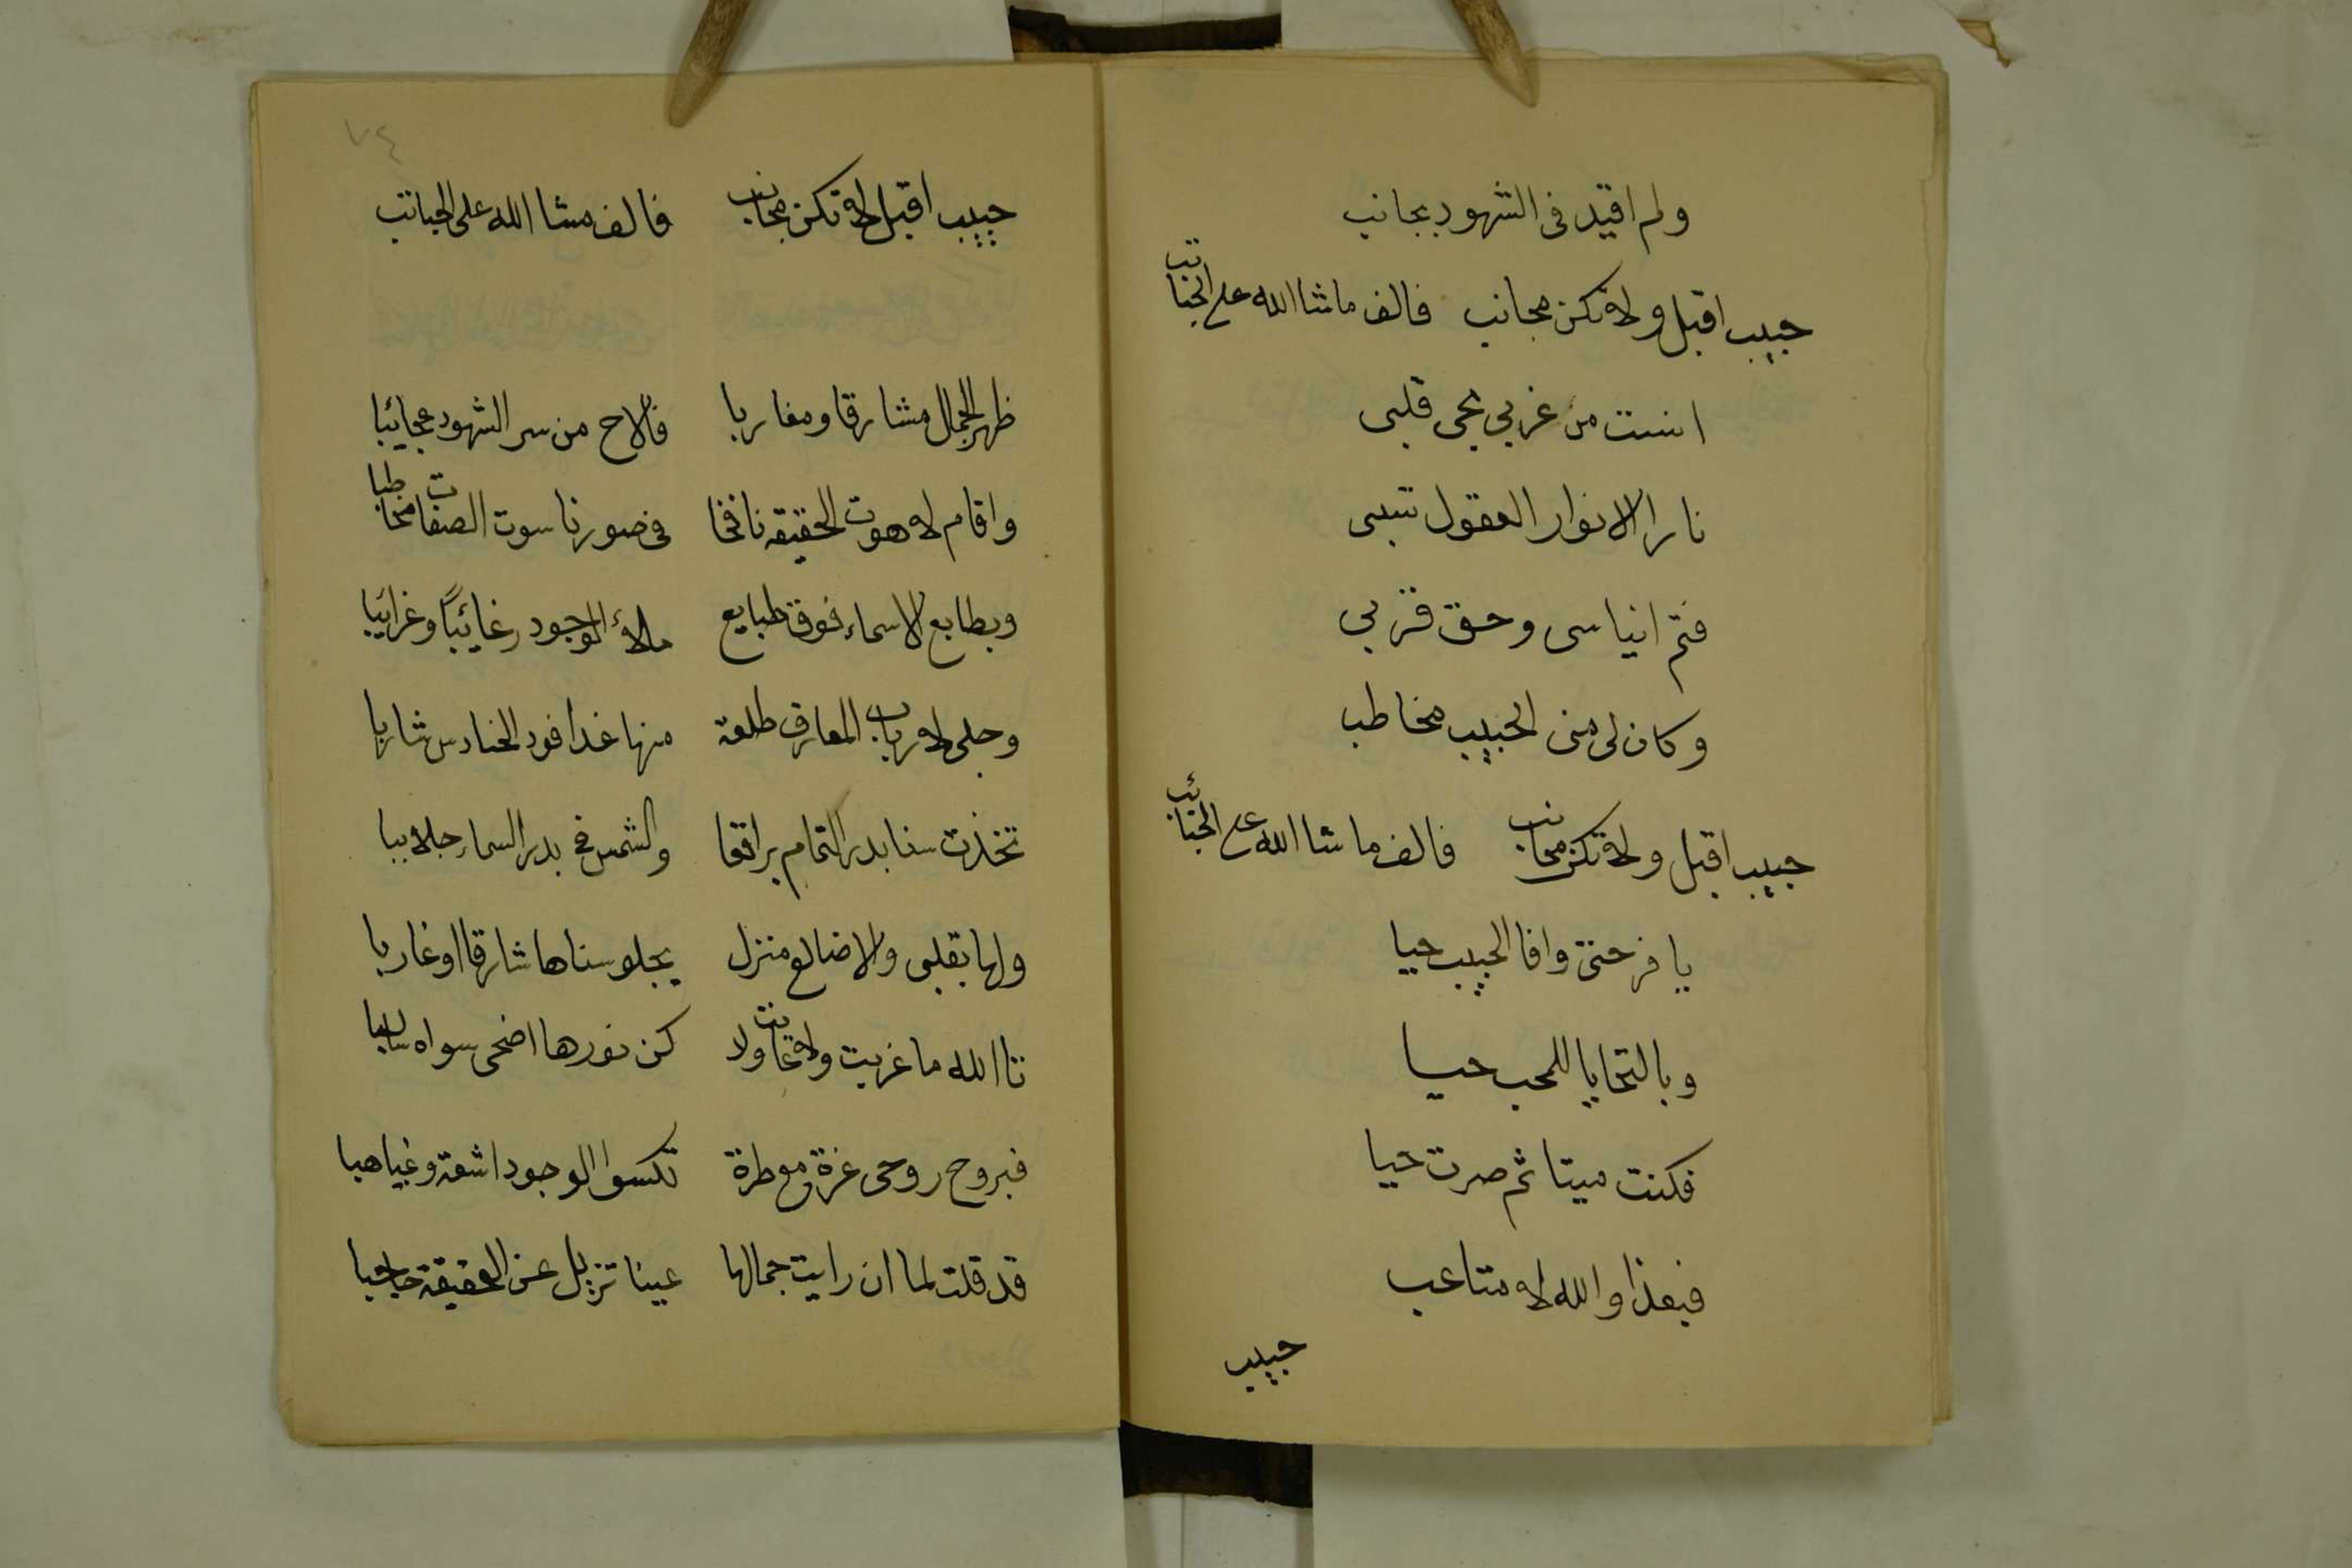 ولم اقيد فى الشهود بجانب
حبيب اقبل ولا تكن مجانب فالف ما شا الله على الجنائب
انست من غربي بحى قلبى
نارا لانوار العقول تسبى
فتم ايناسى وحق قربي
وكان لى منى الحبيب مخاطب
حبيب اقبل ولا تكن مجانب فالف ما شا الله على الجنائب
يا فرحتى وافا الحبيب حيا
وبالتحايا للمحب حيا
فكنت ميتا ثم صرت حيا
فبعذا والله لا متاعب
حبيب
٧٤
حبيب اقبل لا تكن مجانب فالف مشا الله على الجبائب
ظهر الجمال مشارقا ومغاربا فالاح من سر الشهود عجائبا
واقام لاهوت الحقيقه نافخا فى صور ناسوت الصفات مخاطبا
وبطابع الاسماء فوق طبايع ملاء الوجود رغائبًا وغرائبا
وجلى لارباب المعارف طلعة منها غدا فود الحنادس شاربا
تخذت سنا بدر التمام براقعا والشمس فى بدر السماء جلاببا
ولها بقلبى والاضالع منزل يجلو سناها شارقا او غاربا
تا الله ما غربت ولا غابت ولا كن نورها اضحى سواه سالبا
فبروح روحى غرة مع طرة تكسوا الوجود اشعة وغياهبا
قد قلت لما ان رايت جمالها عينا تزيل عن الحقيقة حاجبا